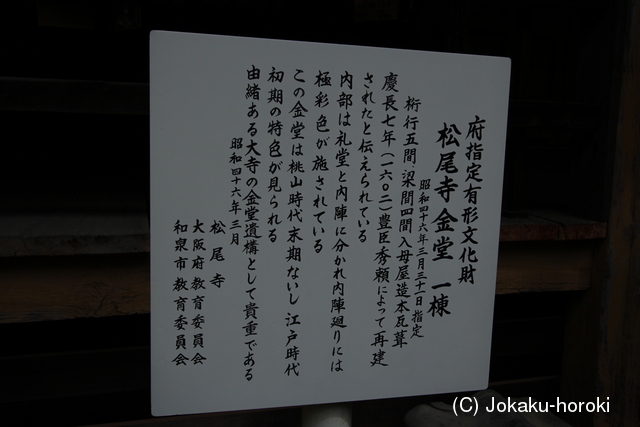 府指定有形文化財
松尾寺金堂 一棟
昭和四十六年三月三十一日指定
桁行五間 梁間四間 入母屋造本瓦葺
慶長七年(一六〇二)豊臣秀頼によって再建
されたと伝えられている
内部は礼堂と内陣に分かれ内陣廻りには
極彩色が施されている
この金堂は桃山時代末期ないし江戸時代
初期の特色が見られる
由緒ある大寺の金堂遺構として貴重である
昭和四十六年三月
松尾寺
大阪府教育委員会
和泉市教育委員会
(C) Jokaku-horoki